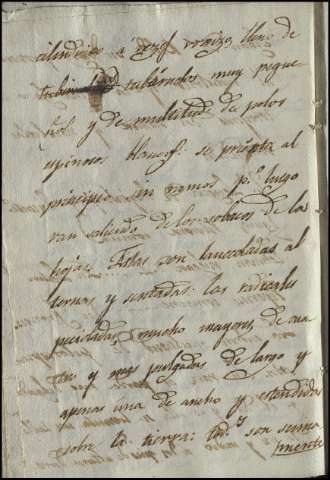 cilindrico á vezes rollizo lleno de
tubérculos muy peque
ños y de multitud de pelos
espinosos blancos. se presenta al
principio sin ramos p.º luego
van saliendo de los sobacos de las
hojas. Estas son lanceoladas al
ternas y sentadas: las radicales
pecioladas mucho mayores, de qua
tro y mas pulgadas de largo y
apenas una de ancho y estendidas
sobre la tierra: tod.s son suma
mente